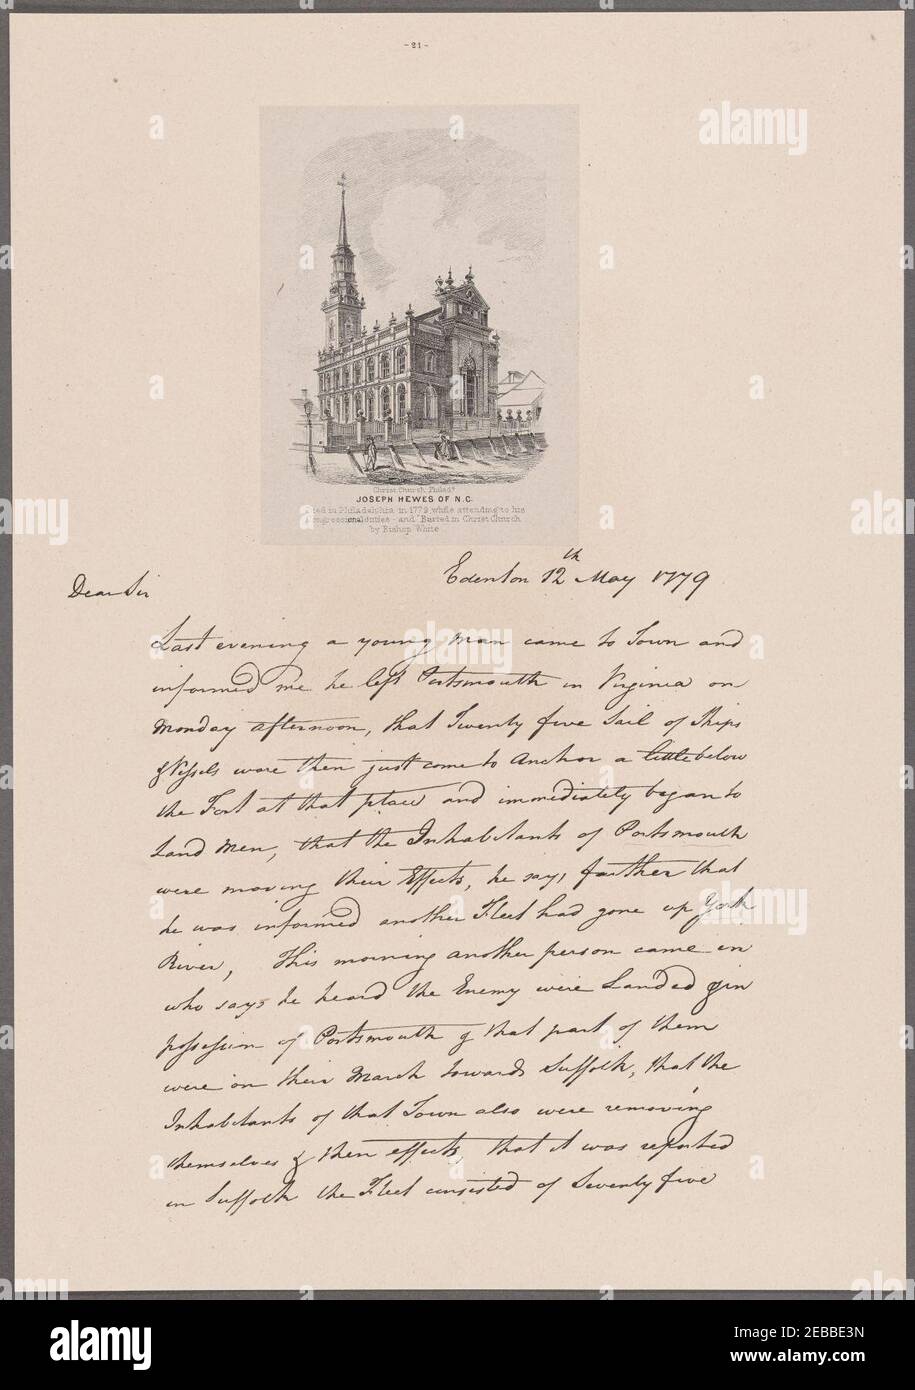 -21-
Christ Church Philad.ª
JOSEPH HEWES OF N.C.
Died in Philadelphia in 1779 while attending to his
Congressional duties - and Buried in Christ Church
by Bishop White
Edenton 12th May 1779
Dear Sir
Last evening a young man came to Town and
informed me he left Portsmouth in Virginia on
Monday afternoon, that Twenty five Sail of Ships
& Vessels were then just come to Anchor a little below
the Fort at that place and immediately began to
Land Men, that the Inhabitants of Portsmouth
were moving their Effects, he says farther that
he was informed another Fleet had gone up York
River, This morning another person came in
who says he heard the Enemy were Landed & in
possession of Portsmouth & that part of them
were on their March towards Suffolk, that the
Inhabitants of that Town also were removing
themselves & their effects, that it was reported
in Suffolk the Fleet consisted of Seventy five
alamy
alamy
Image ID: 2EBBE3N
www.alamy.com